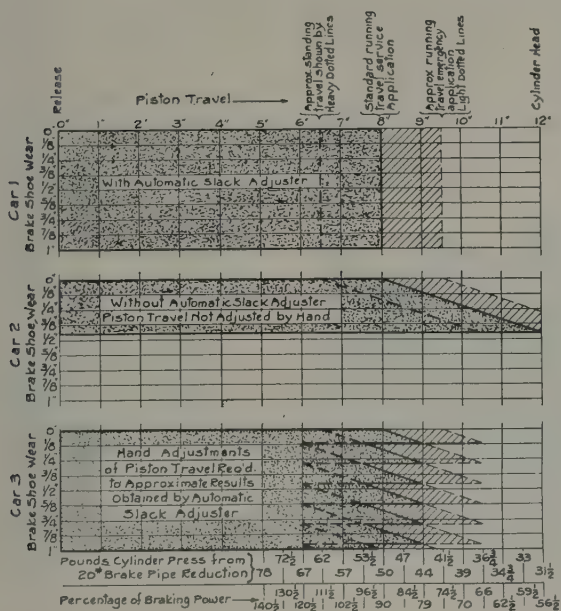 Release
Piston Travel
Approx standing
travel shown by
Heavy Dotted Lines
Standard running
Travel service
Application
Approx running
Travel emergency
application
Light Dotted Lines
Cylinder Head
0" 1" 2" 3" 4" 5" 6" 7" 8" 9" 10" 11" 12"
Car 1
Brake Shoe Wear
0" 1/8 1/4 3/8 1/2 5/8 3/4 7/8 1"
With Automatic Slack Adjuster
Car 2
Brake Shoe Wear
0" 1/8 1/4 3/8 1/2 5/8 3/4 7/8 1"
Without Automatic Slack Adjuster
Piston Travel Not Adjusted by Hand
Car 3
Brake Shoe Wear
0" 1/8 1/4 3/8 1/2" 5/8 3/4 7/8 1"
Hand Adjustments
of Piston Travel Req'd.
to Approximate Results
Obtained by Automatic
Slack Adjuster
Pounds Cylinder Press from
20# Brake Pipe Reduction
72½ 62 53½ 47 41½ 36¾ 33
78 67 57 50 44 39 34¾ 31½
Percentage of Braking Power
130½ 111½ 96½ 84½ 74½ 66 59½
140½ 120½ 102½ 90 79 70 62½ 56½